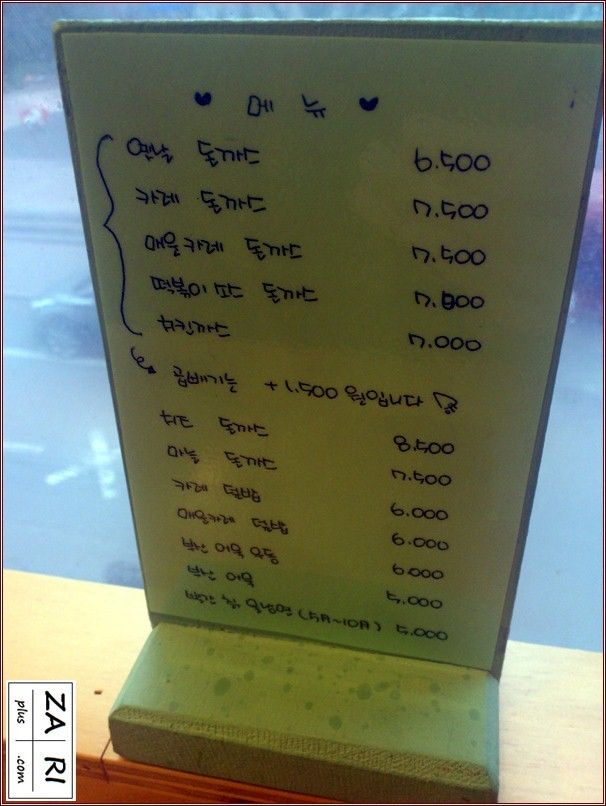 ♥ 메뉴 ♥
옛날 돈까스 6.500
카레 돈까스 7.500
매운카레 돈까스 7.500
떡볶이 돈까스 7.
치킨까스 7.000
곱배기는 +1.500 원입니다
치즈 돈까스 8.500
마늘 돈까스 7.500
카레 덮밥 6.000
매운카레 덮밥 6.000
부산 어묵 우동 6.000
부산 어묵 5.000
물냉면 (5月~10月) 5.000
ZA RI
plus .com